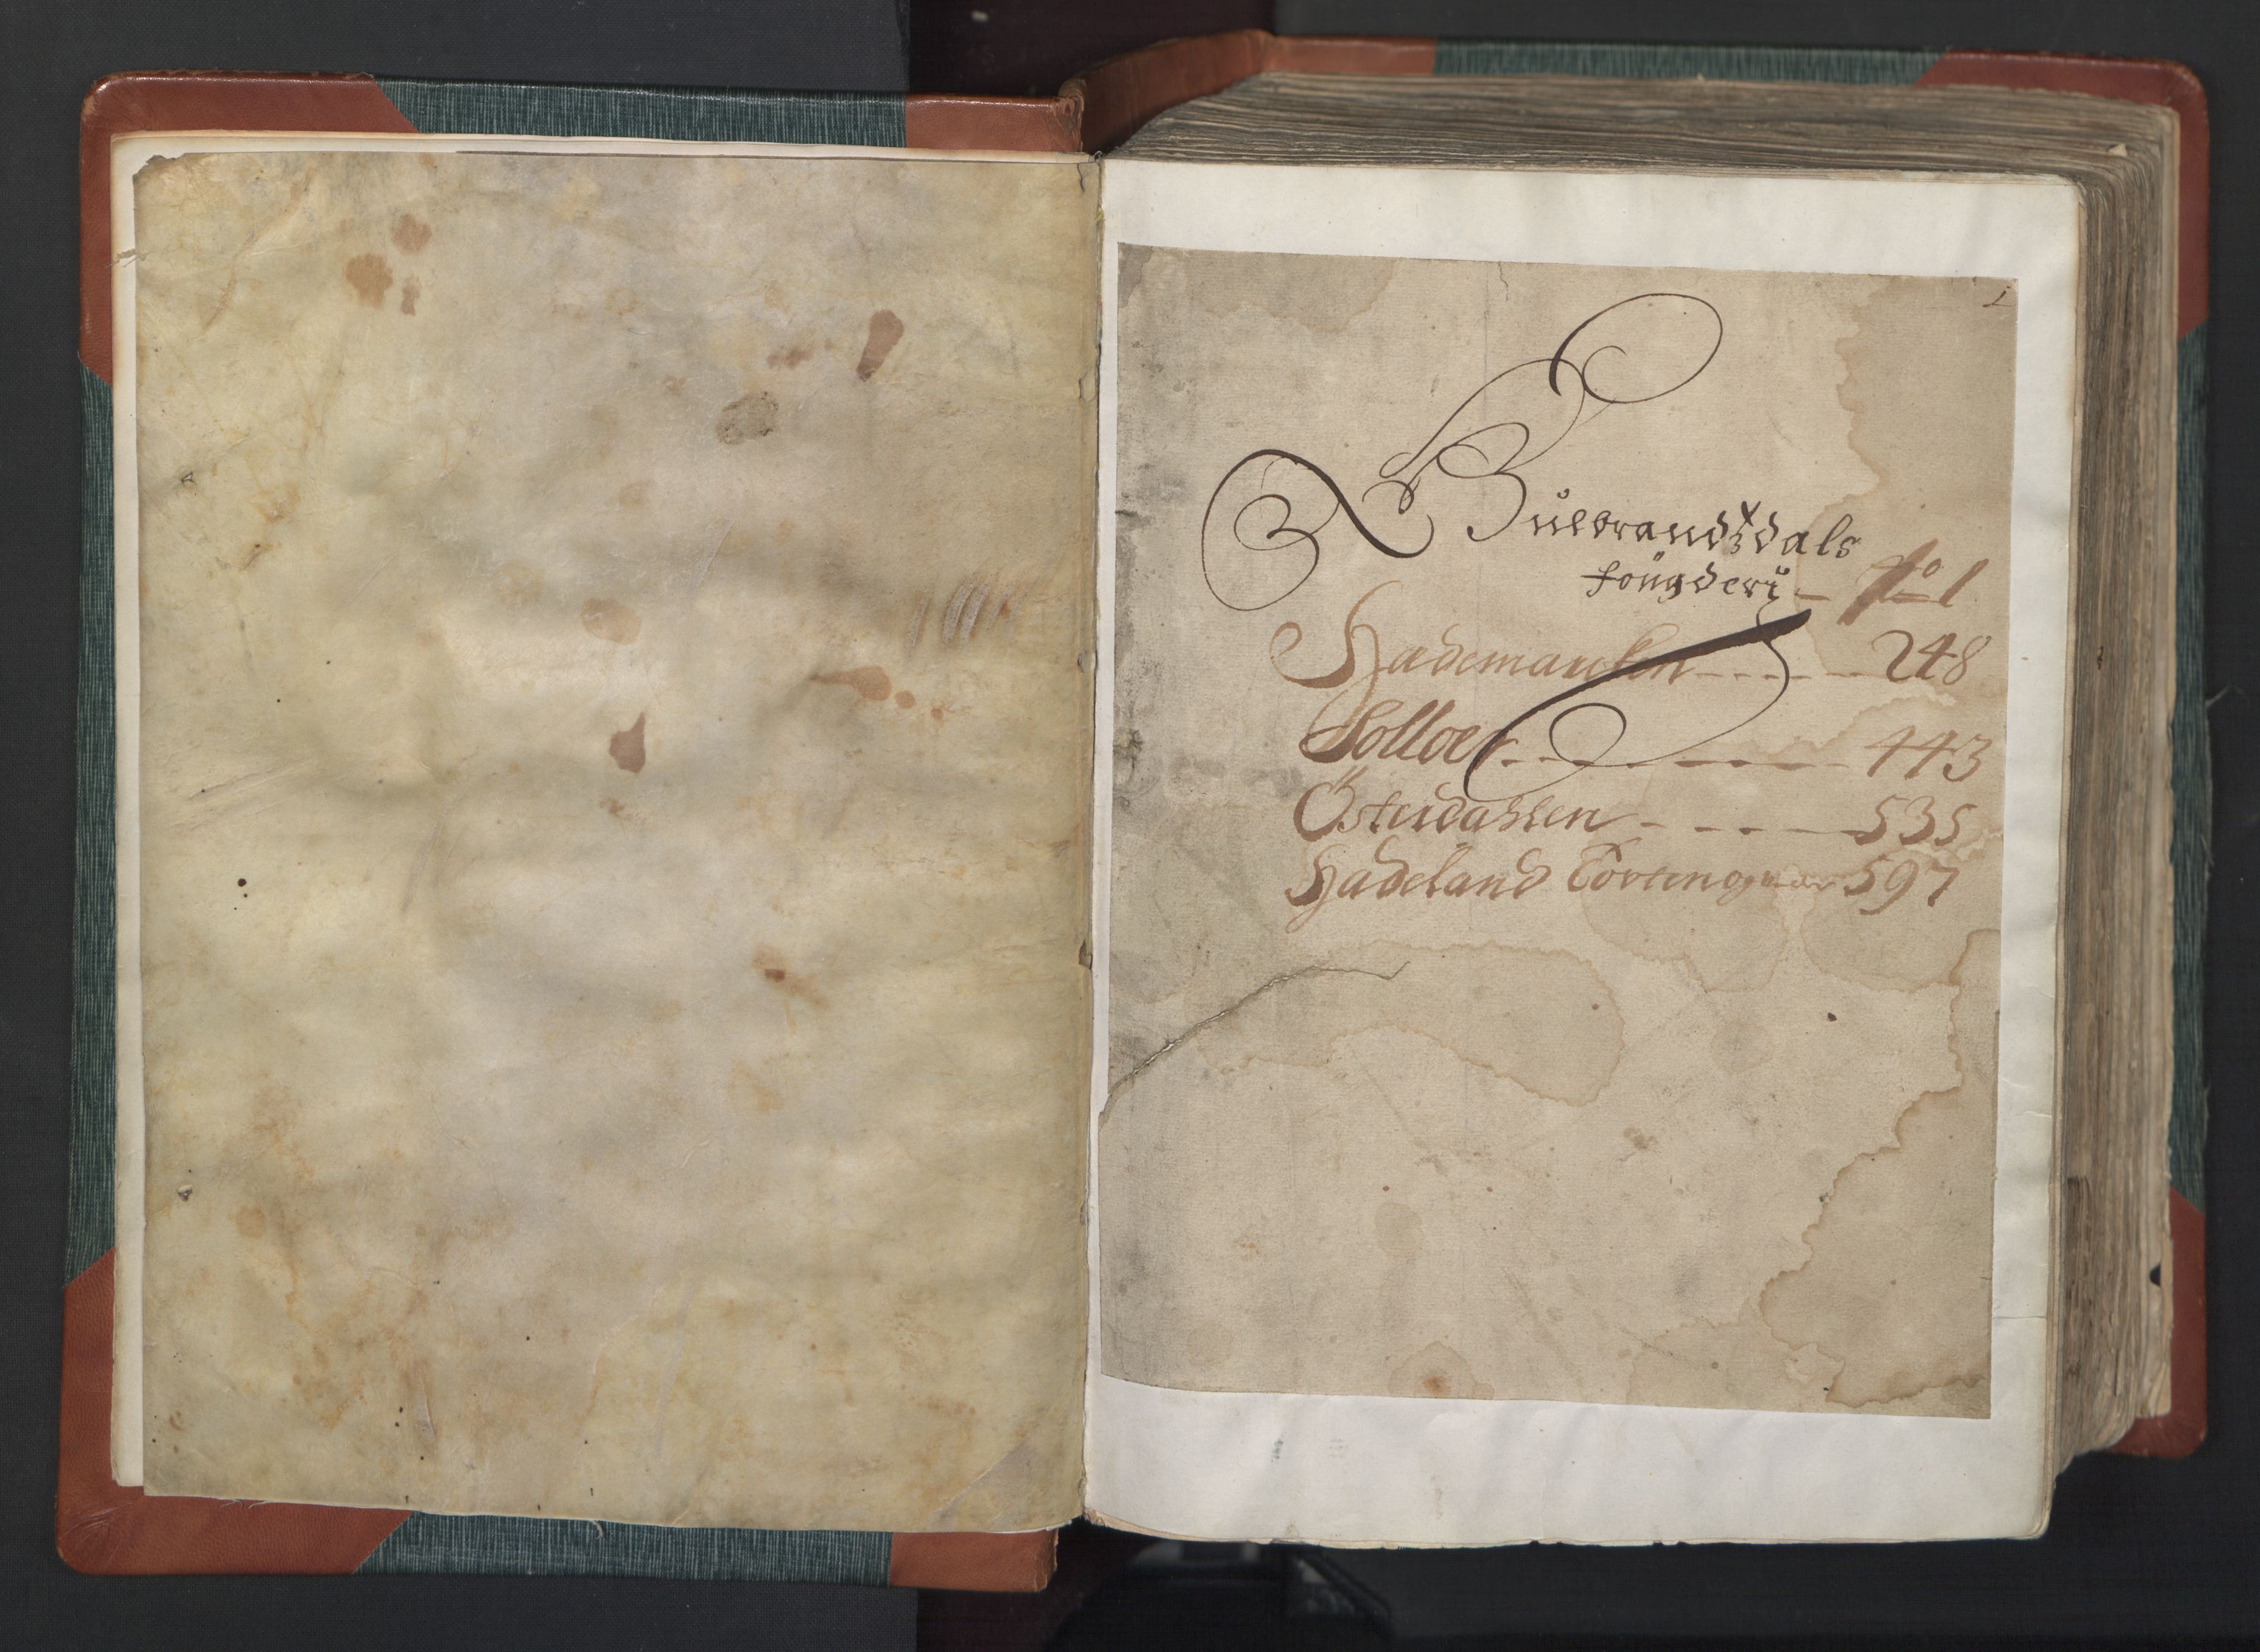 1
Gulbrandzdals
fougderi — fo 1
Hademarcken ----- 248
Solloer ------ 443
Österdahlen - --- 535
Hadeland Torten og 597